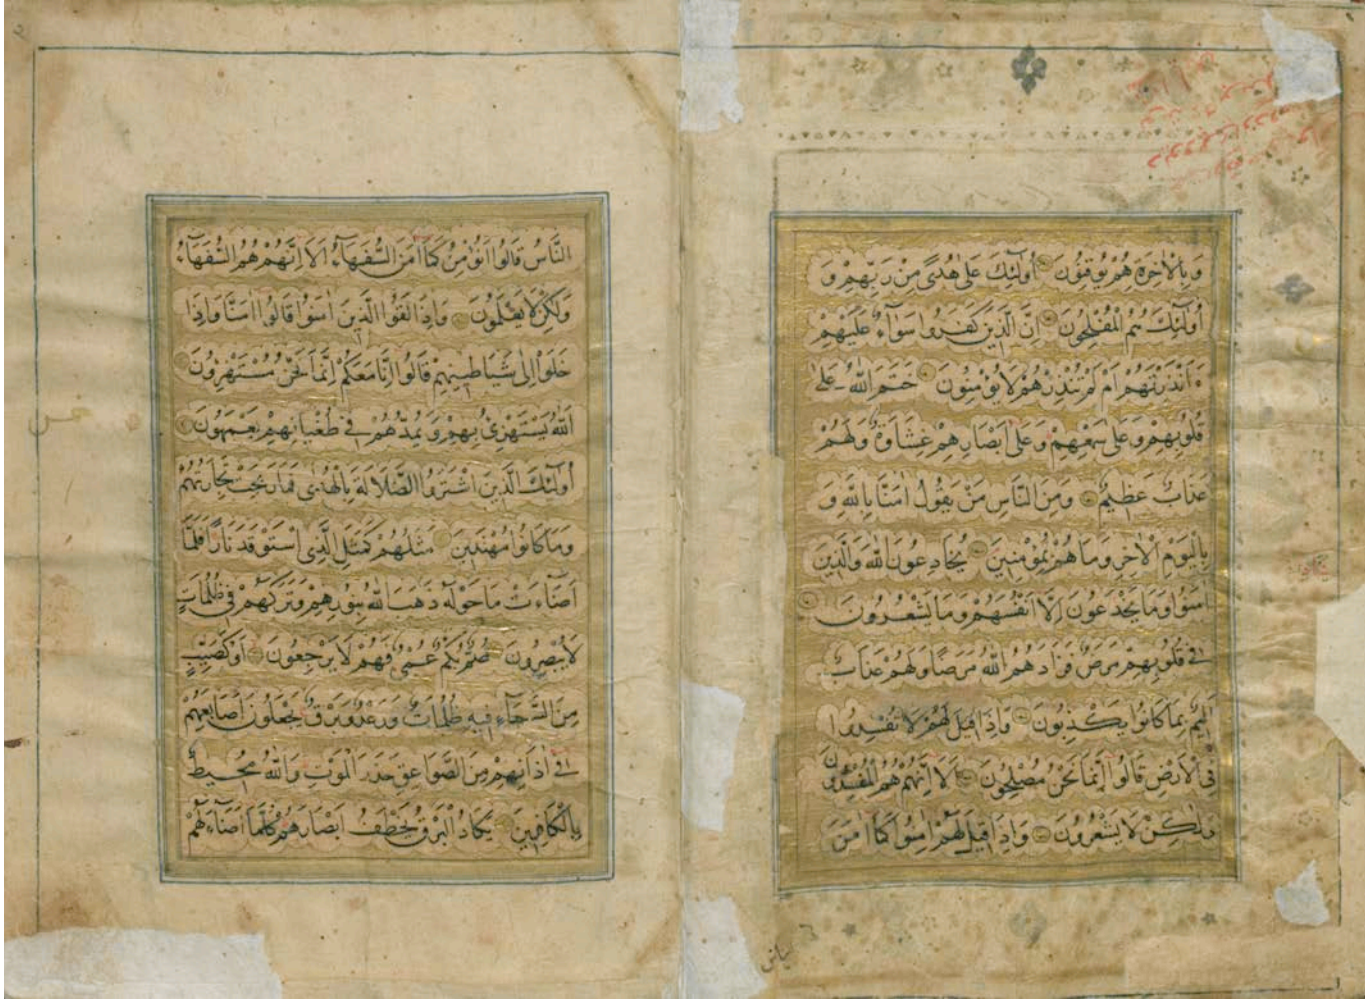 وَبِالْاٰخِرَةِ هُمْ يُوقِنُونَ اُولٰٓئِكَ عَلٰى هُدًى مِنْ رَبِّهِمْ وَ
اُولٰٓئِكَ هُمُ الْمُفْلِحُونَ اِنَّ الَّذِينَ كَفَرُوا سَوَآءٌ عَلَيْهِمْ
ءَاَنْذَرْتَهُمْ اَمْ لَمْ تُنْذِرْهُمْ لَا يُؤْمِنُونَ خَتَمَ اللّٰهُ عَلٰى
قُلُوبِهِمْ وَعَلٰى سَمْعِهِمْ وَعَلٰى اَبْصَارِهِمْ غِشَاوَةٌ وَلَهُمْ
عَذَابٌ عَظِيمٌ وَمِنَ النَّاسِ مَنْ يَقُولُ اٰمَنَّا بِاللّٰهِ وَ
بِالْيَوْمِ الْاٰخِرِ وَمَا هُمْ بِمُؤْمِنِينَ يُخَادِعُونَ اللّٰهَ وَالَّذِينَ
اٰمَنُوا وَمَا يَخْدَعُونَ اِلَّا اَنْفُسَهُمْ وَمَا يَشْعُرُونَ
فِي قُلُوبِهِمْ مَرَضٌ فَزَادَهُمُ اللّٰهُ مَرَضًا وَلَهُمْ عَذَابٌ
اَلِيمٌ بِمَا كَانُوا يَكْذِبُونَ وَاِذَا قِيلَ لَهُمْ لَا تُفْسِدُوا
فِي الْاَرْضِ قَالُوا اِنَّمَا نَحْنُ مُصْلِحُونَ اَلَا اِنَّهُمْ هُمُ الْمُفْسِدُونَ
وَلٰكِنْ لَا يَشْعُرُونَ وَاِذَا قِيلَ لَهُمْ اٰمِنُوا كَمَا اٰمَنَ
النَّاسُ قَالُوا اَنُؤْمِنُ كَمَا اٰمَنَ السُّفَهَآءُ اَلَا اِنَّهُمْ هُمُ السُّفَهَآءُ
وَلٰكِنْ لَا يَعْلَمُونَ وَاِذَا لَقُوا الَّذِينَ اٰمَنُوا قَالُوا اٰمَنَّا وَاِذَا
خَلَوْا اِلٰى شَيَاطِينِهِمْ قَالُوا اِنَّا مَعَكُمْ اِنَّمَا نَحْنُ مُسْتَهْزِؤُنَ
اَللّٰهُ يَسْتَهْزِئُ بِهِمْ وَيَمُدُّهُمْ فِي طُغْيَانِهِمْ يَعْمَهُونَ
اُولٰٓئِكَ الَّذِينَ اشْتَرَوُا الضَّلَالَةَ بِالْهُدٰى فَمَا رَبِحَتْ تِجَارَتُهُمْ
وَمَا كَانُوا مُهْتَدِينَ مَثَلُهُمْ كَمَثَلِ الَّذِي اسْتَوْقَدَ نَارًا فَلَمَّا
اَضَآءَتْ مَا حَوْلَهُ ذَهَبَ اللّٰهُ بِنُورِهِمْ وَتَرَكَهُمْ فِي ظُلُمَاتٍ
لَا يُبْصِرُونَ صُمٌّ بُكْمٌ عُمْيٌ فَهُمْ لَا يَرْجِعُونَ اَوْ كَصَيِّبٍ
مِنَ السَّمَآءِ فِيهِ ظُلُمَاتٌ وَرَعْدٌ وَبَرْقٌ يَجْعَلُونَ اَصَابِعَهُمْ
فِي اٰذَانِهِمْ مِنَ الصَّوَاعِقِ حَذَرَ الْمَوْتِ وَاللّٰهُ مُحِيطٌ
بِالْكَافِرِينَ يَكَادُ الْبَرْقُ يَخْطَفُ اَبْصَارَهُمْ كُلَّمَا اَضَآءَ لَهُمْ